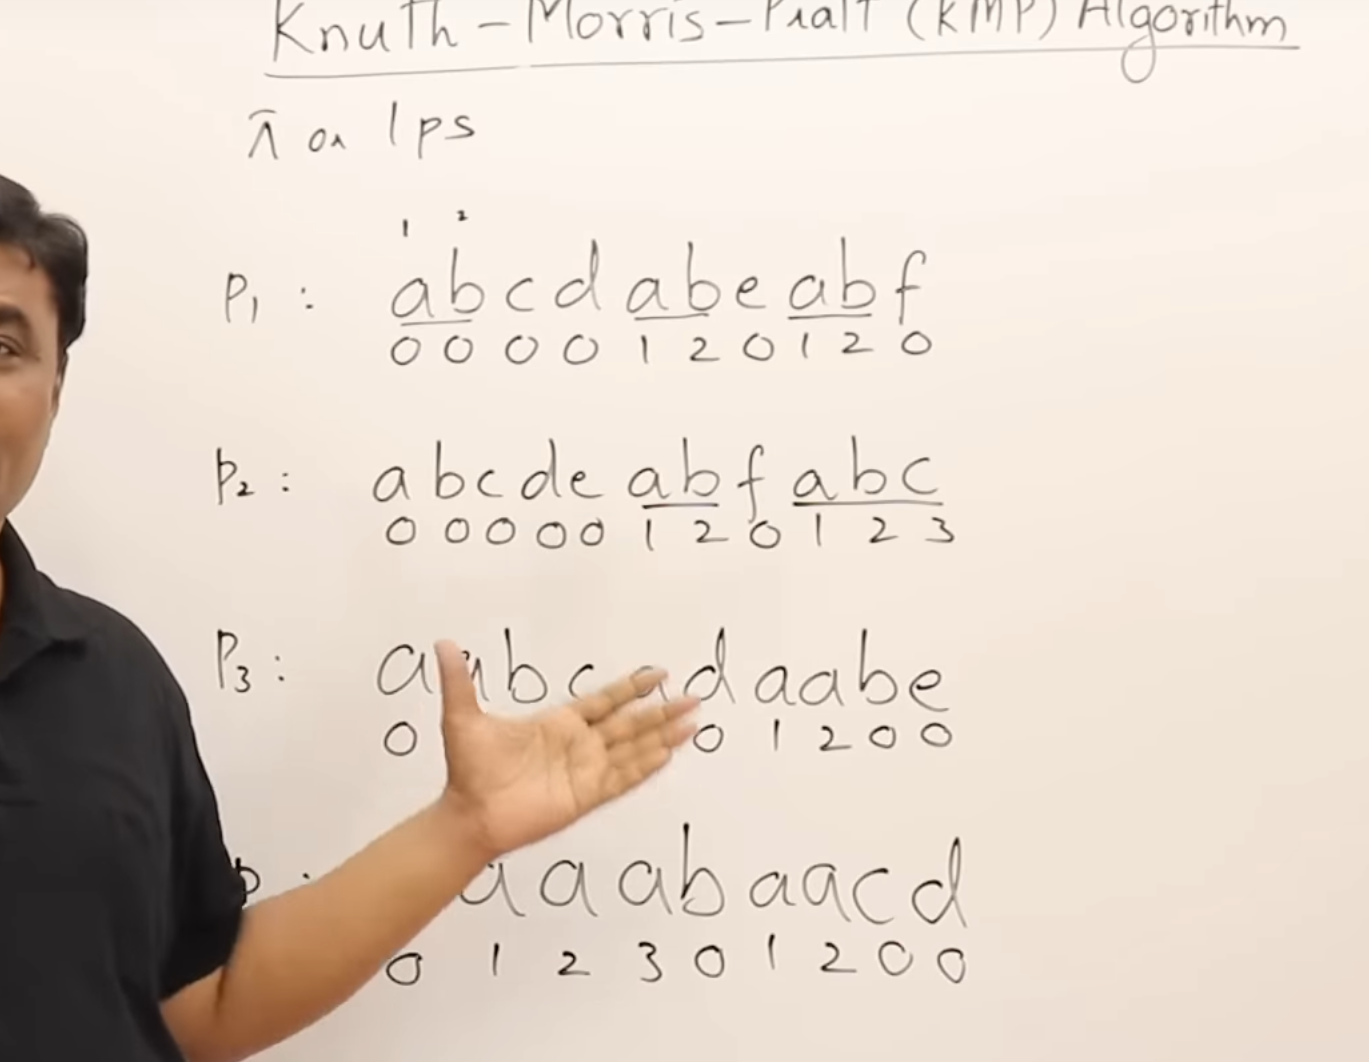 Knuth - Morris - Pratt (KMP) Algorithm
π or lps
1 2
P₁ : a b c d a b e a b f
0 0 0 0 1 2 0 1 2 0
P₂ : a b c d e a b f a b c
0 0 0 0 0 1 2 0 1 2 3
P₃ : a a b c a d a a b e
0 0 1 2 0 0
a a a b a a c d
0 1 2 3 0 1 2 0 0